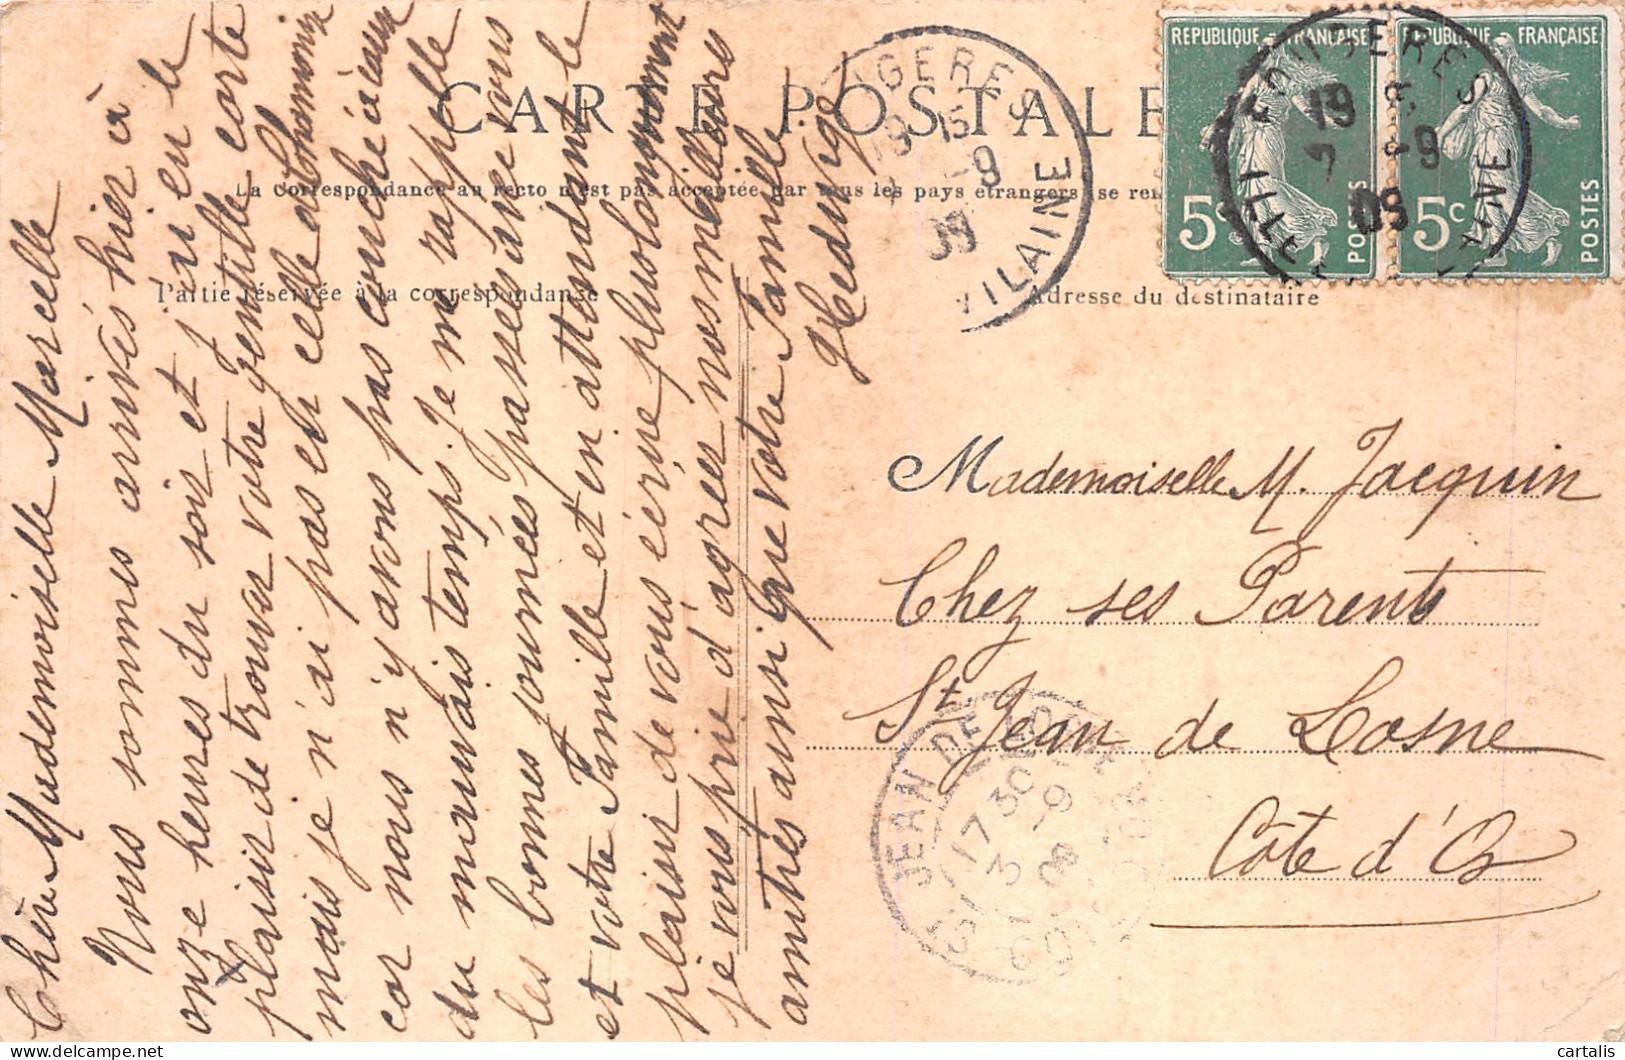 CARTE POSTALE
La Correspondance au recto n'est pas acceptée par tous les pays étrangers, se ren
Partie réservée à la correspondance
Adresse du destinataire
REPUBLIQUE FRANÇAISE
5c
POSTES
REPUBLIQUE FRANÇAISE
5c
POSTES
FOUGERES
19 15
-9
09
VILAINE
FOUGERES
19
7 -9
09
ILLE VILAINE
Chère Mademoiselle Marcelle
Nous sommes arrivés hier à
onze heures du soir et j'ai eu le
plaisir de trouver votre gentille carte
mais je n'ai pas eu celle de
cor nous n'y avons pas couché à cause
du mauvais temps. Je me rappelle
les bonnes journées passées avec vous
et votre Famille et en attendant le
plaisir de vous écrire plus longuement
je vous prie d'agréer nos meilleurs
amitiés ainsi que votre Famille
Hedwige
Mademoiselle M. Jacquin
Chez ses Parents
St Jean de Losne
Côte d'Or
ST JEAN DE LOSNE
17 30
3 -9
09
COTE D'OR
cartalis